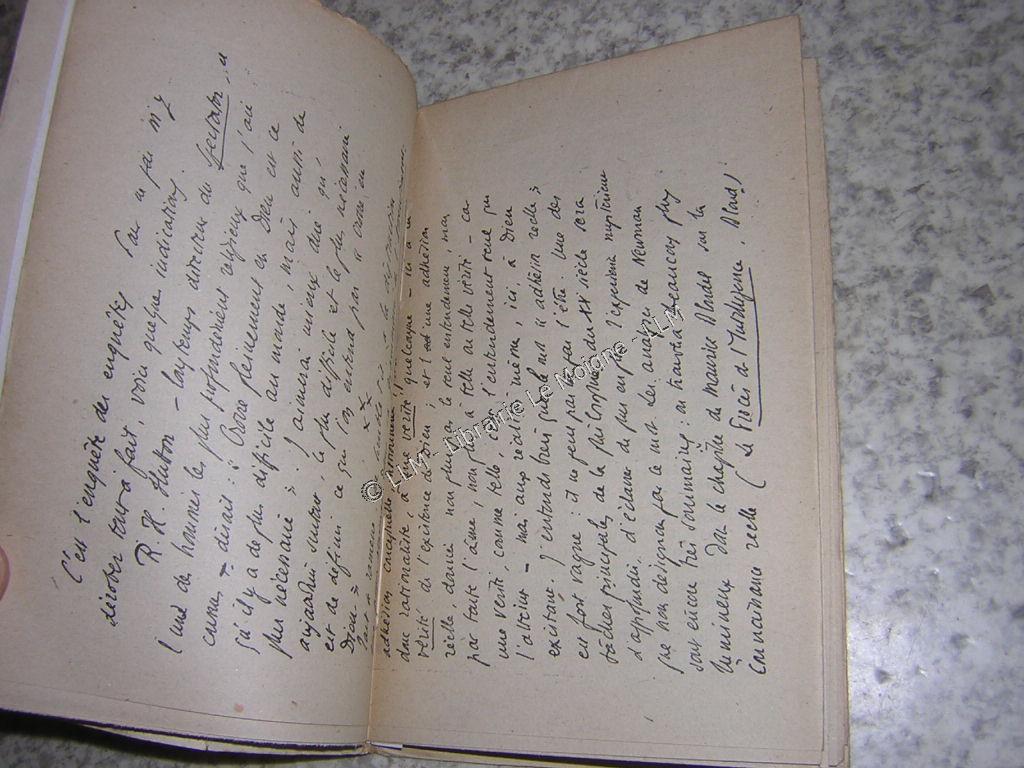 C'est l'enquête des enquêtes. Pour ne pas m'y
dérober tout à fait, voici quelques indications.
R. H. Hutton – longtemps directeur du Spectator, et
l'un des hommes les plus profondément religieux que j'aie
connus – disait : « Croire pleinement en Dieu est ce
qu'il y a de plus difficile au monde, mais aussi de
plus nécessaire ». J'aimerais mieux dire qu'
aujourd'hui surtout, le plus difficile et le plus nécessaire
est de définir ce qu'on entend par « croire en
Dieu ».
adhésion conceptuelle
dans l'actualité, à une vérité quelconque – ici à la
vérité de l'existence de Dieu, et 1° est une adhésion
réelle, donnée non pas par le seul entendement, mais
par toute l'âme, non pas à telle ou telle vérité – car
une vérité, comme telle, c'est l'entendement seul qui
l'atteint – mais aux réalités même, ici, à Dieu
existant. J'entends bien que le mot « adhésion réelle »
est fort vague : il ne peut pas ne pas l'être. Une des
tâches principales de la philosophie du XXe siècle sera
d'approfondir, d'éclairer de plus en plus l'expérience mystérieuse
que nous désignons par ce mot. Les analyses de Newman
sont encore très sommaires ; on trouvera beaucoup plus
lumineux dans le chapitre de Maurice Blondel sur la
Connaissance réelle (Le Procès de l'Intelligence. Bloud)
© LLM - Librairie Le Moigne - LLM